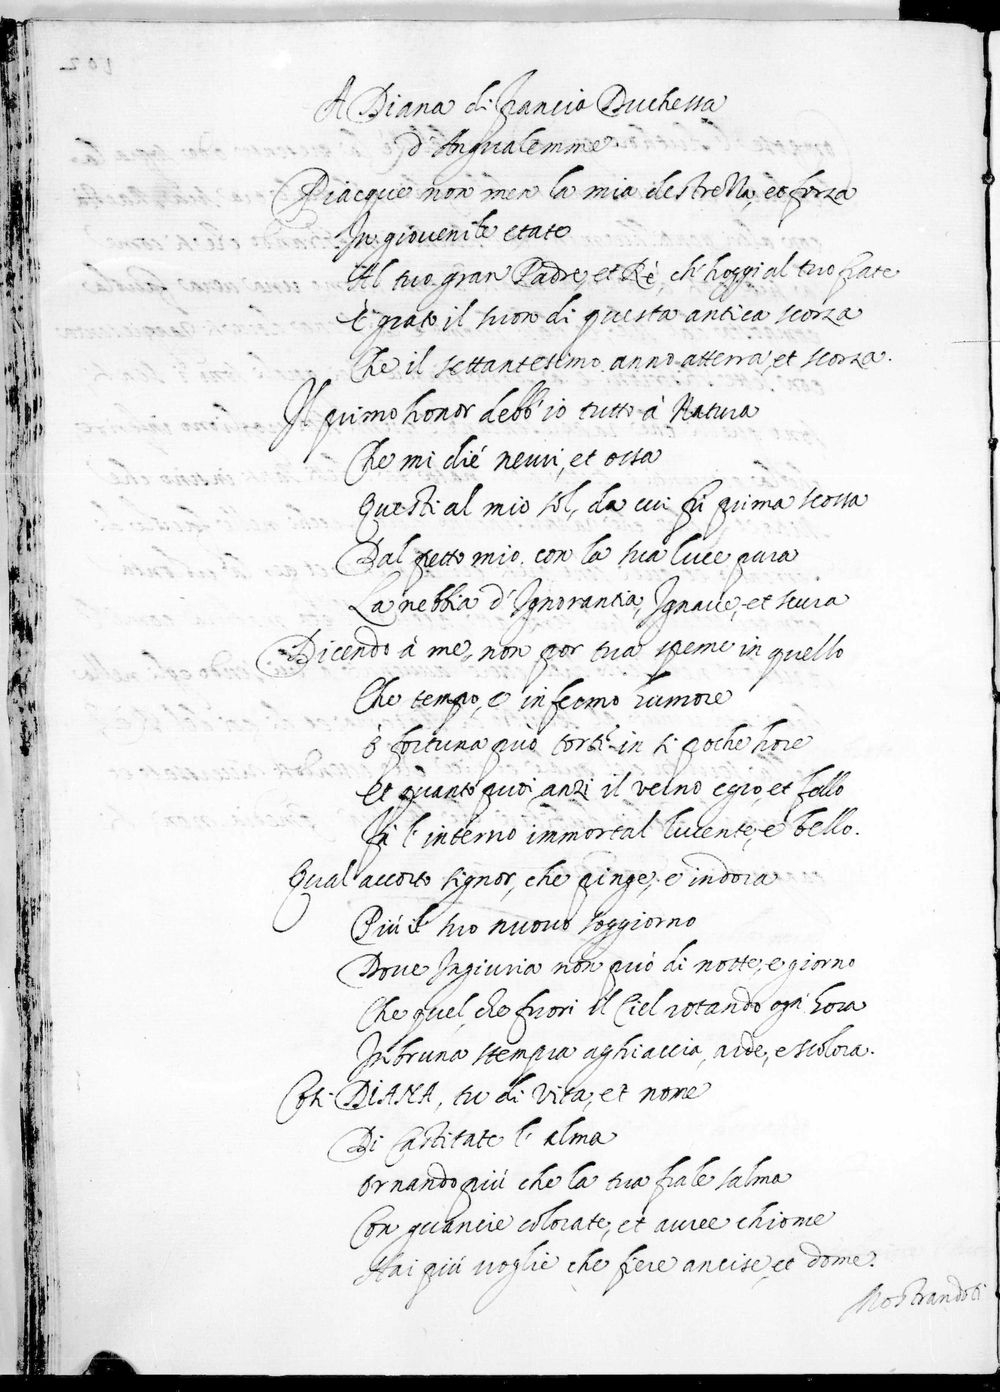 A Diana di Francia Duchessa
d'Angualemme.
Piacque non men la mia destrezza, et forza
In giovenile etate
Al tuo gran Padre, et Rè, ch'hoggi al tuo frate
È grato il suon di questa antica scorza
Che il settantesimo anno atterra, et scorza.
Il primo honor debb'io tutto à Natura
Che mi diè nervi, et ossa
Questi al mio sol, da cui fù prima scossa
Dal petto mio, con la sua luce pura
La nebbia d'Ignorantia, Ignave, et scura
Dicendo à me, non por tua speme in quello
Che tempo, e infermo humore
ò fortuna può torti in sì poche hore
Et quanto puoi anzi il verno egro, et fello
Fà l'interno immortal lucente, e bello.
Qual accorto signor, che pinge, e indora
Più il suo nuovo soggiorno
Dove Ingiuria non può di notte, e giorno
Che quel, che fuori il Ciel rotando ogn'hora
In bruna stempra aghiaccia, arde, e scolora.
Così DIANA, tu di vita, et nome
Di Castitate l'alma
ornando più che la tua frale salma
Con guancie colorate, et auree chiome
Hai più voglie che fiere ancise, et dome.
Mostrandoti